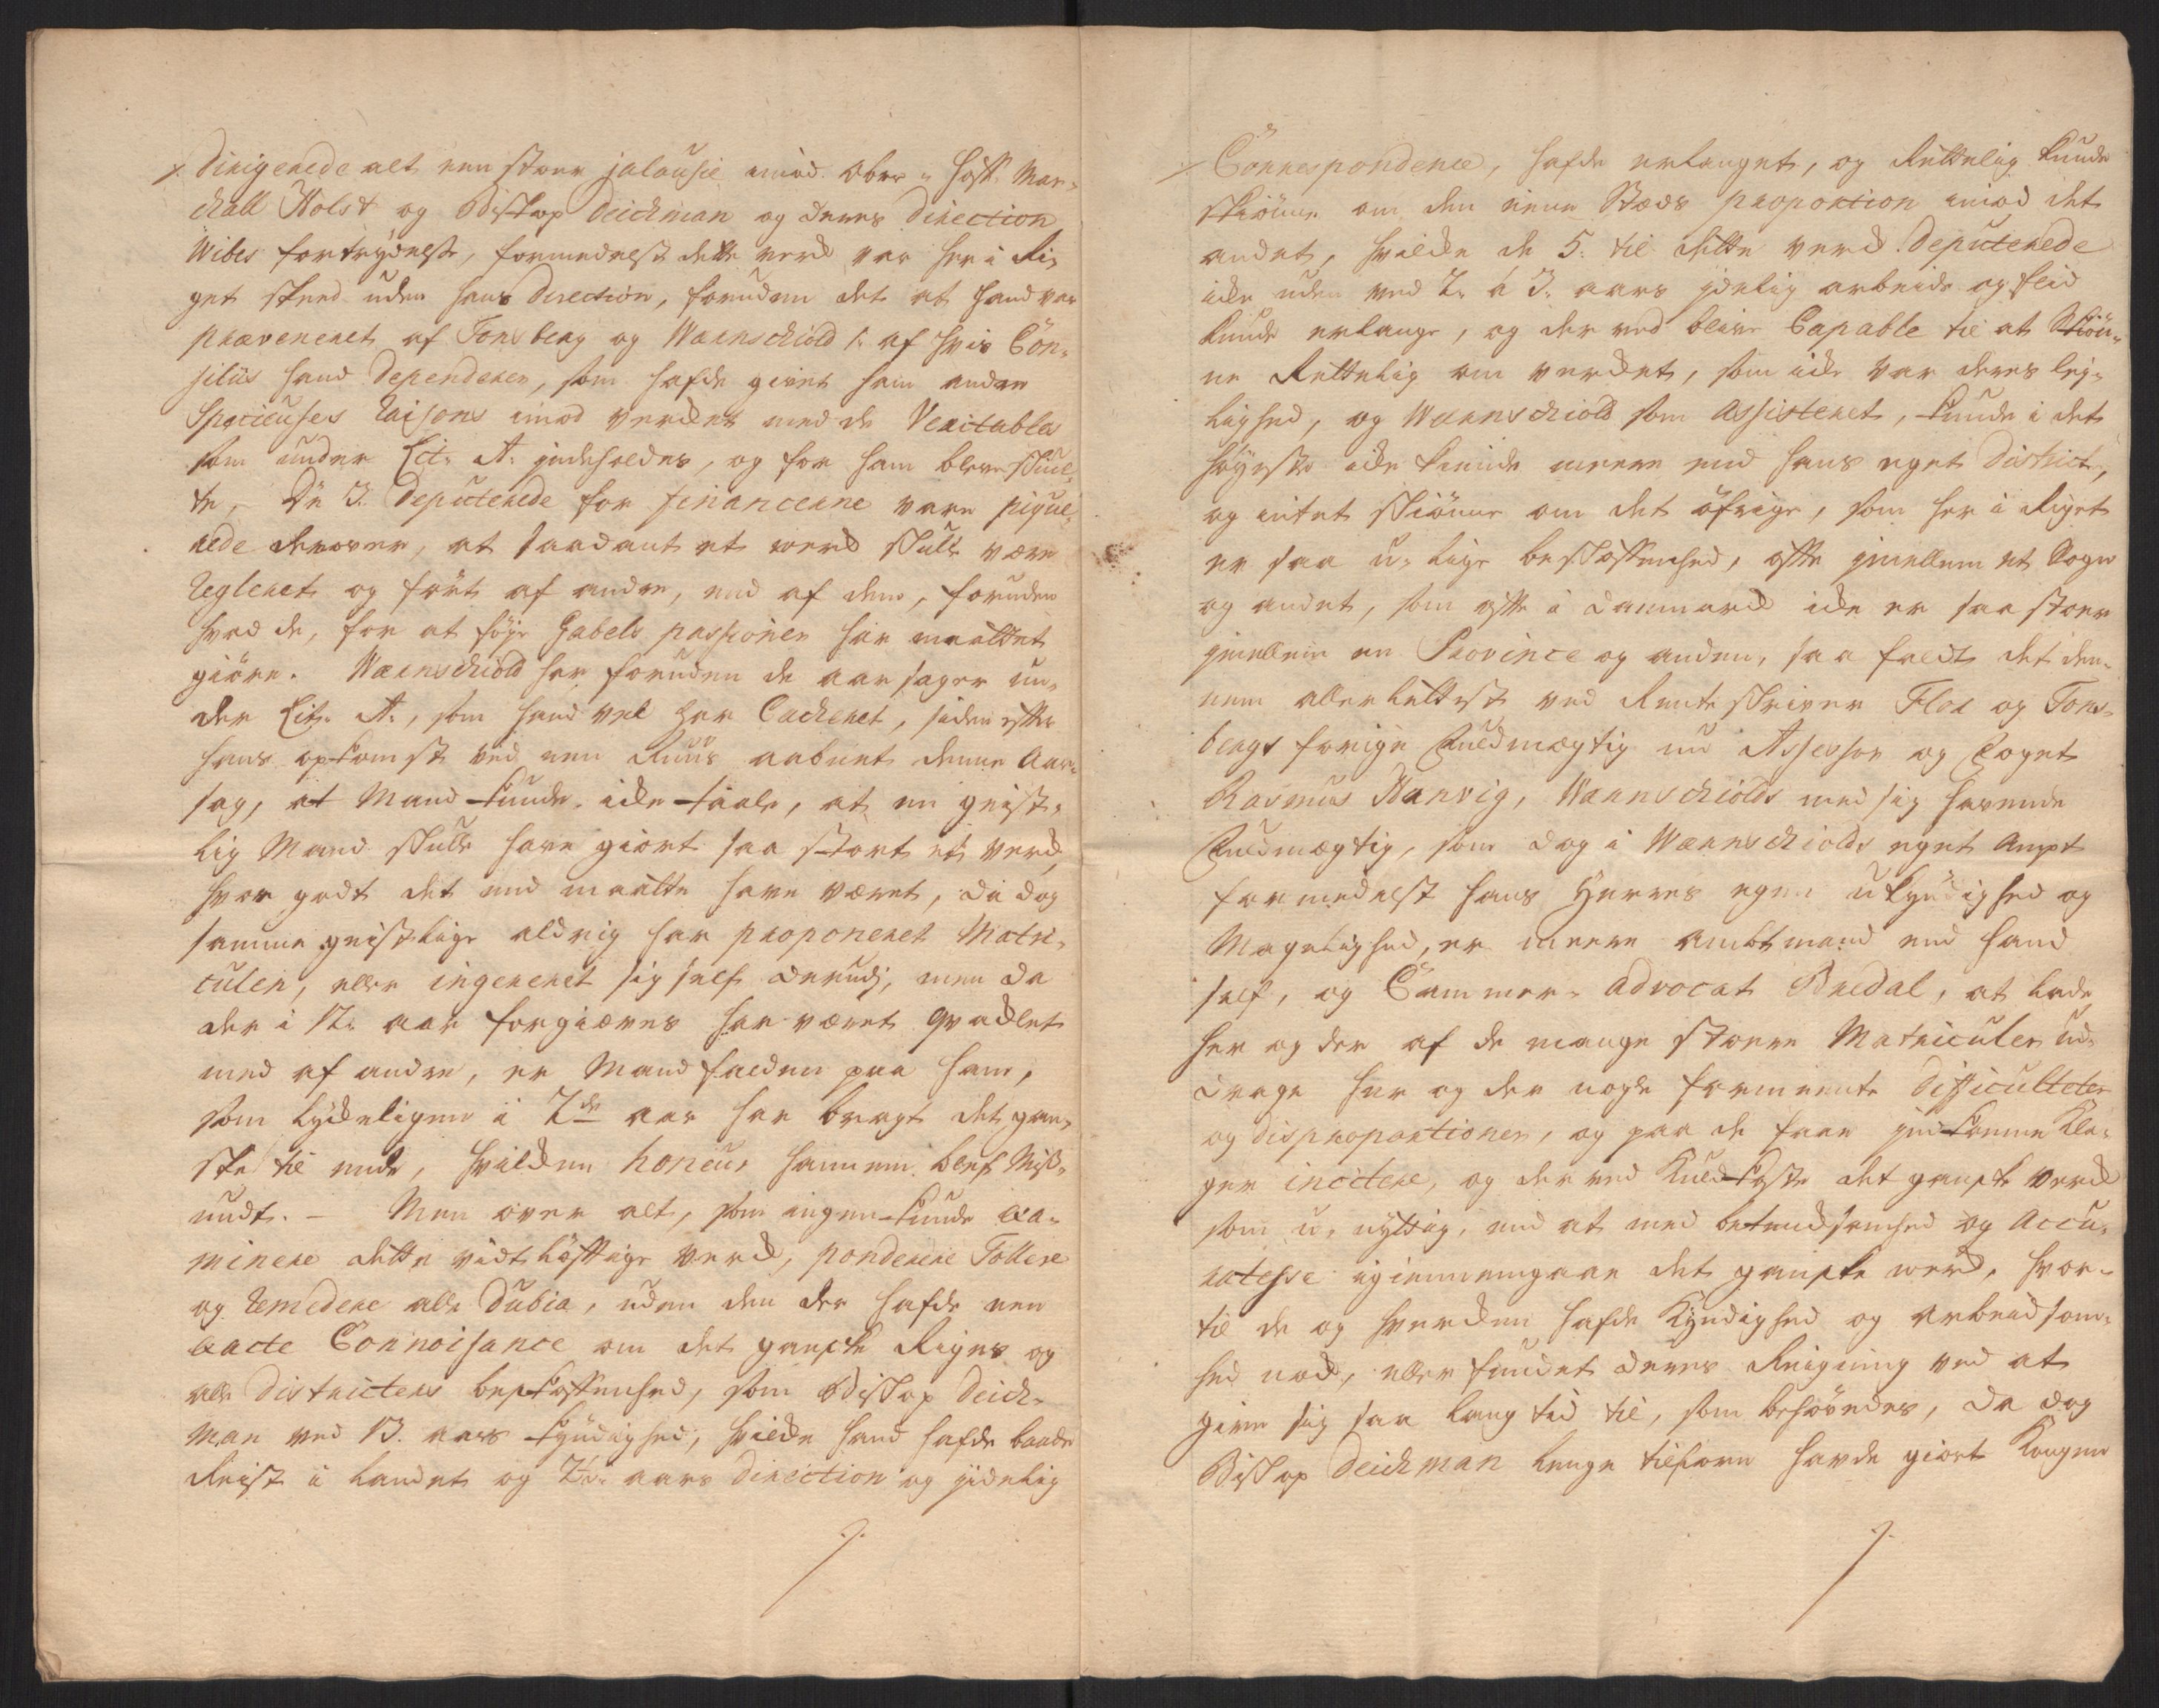 /. dirigerede alt een stoer jalousie imod Ober-Hoff-Mar-
chall Holst og Biskop Deichman og deres Direction
Wibes fortrydelse, formedelst dette verck var her i Ri-
get skeed uden hans Direction, foruden det at hand var
præveneret af Tonsberg og Wærnschiold /: af hvis Con-
siliis hand dependerer, som hafde givet ham andre
Specieuses Raisons imod vercket end de Veritables
som under Lit: A: indeholdes, og for ham bleve skiul-
te, De 3. Deputerede for financerne vare pique-
rede derover, at saadant et werck skulle være
regleret og ført af andre, end af dem, foruden
hvad de, for at føye Gabels passioner har maattet
giøre. Wærnschiold har foruden de aarsager un-
der Lit: A:, som hand vel har Cacheret, siden efter
hans opkomst ved een Ruus aabnet denne Aar-
sag, at Mand kunde icke taale, at en geist-
lig Mand skulle have giort saa stort et verck,
hvor godt det end maatte have været, da dog
samme geistlige aldrig har proponeret Matri-
culen, eller ingereret sig self derudj, men da
der i 12. aar forgiæves har været qvacklet
med af andre, er Mand falden paa ham,
som lyckeligen i 2de aar har bragt det gan-
ske til ende, hvilcken honeur hannem blef Mis-
undt. – Men over alt, som ingen kunde exa-
minere dette vidtløftige verck, ponderere Tollere
og remedere alle Dubia, uden den der hafde een
exacte Connoisance om det gandske Riges og
alle Districters beskaffenhed, som Biskop Deich-
man ved 13. aars kyndighed, hvilcke hand hafde baade
Reist i landet og 2de aars Direction og jidelig
/.
/. Correspondence, hafde erlanget, og Rettelig kunde
skiønne om den eene Stæds proportion imod det
andet, hvilcke de 5. til dette verck Deputerede
icke uden ved 2. à 3. aars jdelig arbeide og fliid
kunde erlange, og der ved blive Capable til at Skiøn-
ne Rettelig om vercket, som icke var deres lej-
lighed, og Wærnschiold som Assisteret, kunde i det
høyeste icke kiende meere end hans eget District,
og intet skiønne om det øfrige, som her i Riget
er saa u-lige beskaffenhed, ofte jmellem et Sogn
og andet, som ofte i Danmarck icke er saa stoer
jmellem en Province og anden, saa faldt det den-
nem allerlettest ved Renteskriver Flor og Tons-
bergs forige Fuldmægtig nu Assessor og Foget
Rasmus Hanvig, Wærnschiolds med sig havende
Fuldmægtig, som dog i Wærnschiolds eget Ampt
formedelst hans Herres egen ukyndighed og
Magelighed, er meere ambtmand end hand
self, og Cammer-Advocat Bredal, at lade
her og der af de mange stoere Matriculer ud-
drage her og der nogle formeente Difficulteter
og disproportioner, og paa de faae jndkomne Kla-
ger incitere, og der ved Kuldkaste det gandske verck
som u-nyttig, end at med betencksomhed og Accu-
ratesse igiennemgaae det gandske werck, hvor-
til de og hvercken hafde Kyndighed og arbeidsom-
hed nock, eller fundet deres Reigning ved at
give sig saa lang tid til, som behøvedes, da dog
Biskop Deichman lenge tilforn havde giort Kongen
/.